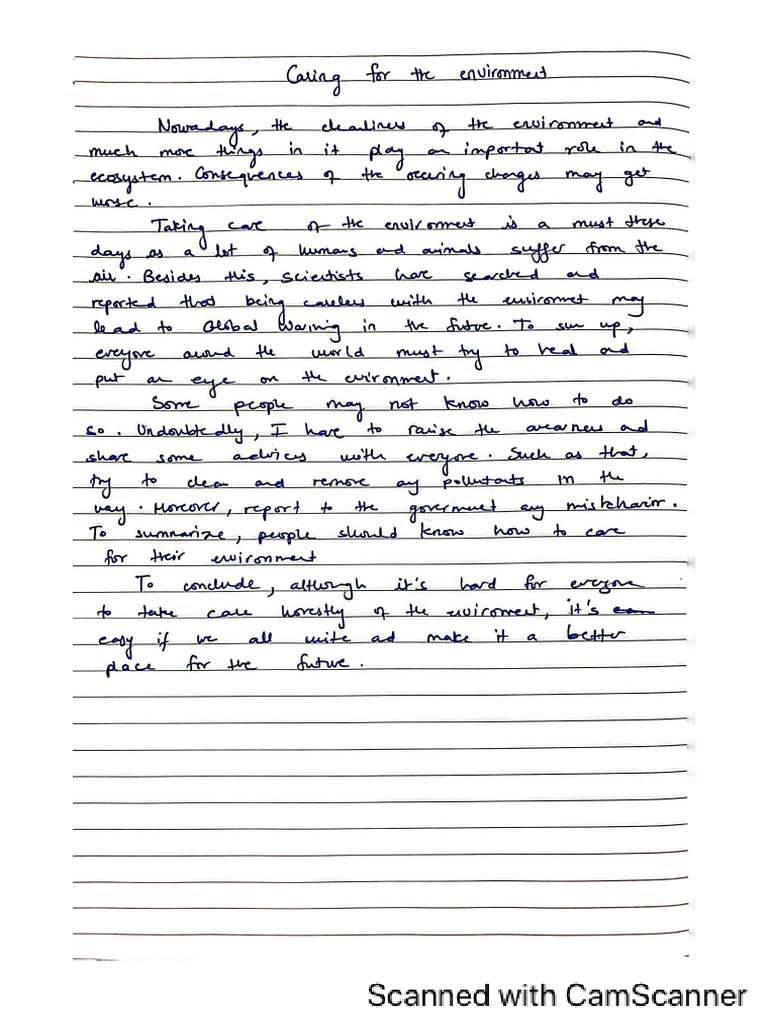 Caring for the environment
Nowadays, the cleanliness of the environment and
much more things in it play an important role in the
ecosystem. Consequences of the occuring changes may get
worse.
Taking care of the environment is a must these
days as a lot of humans and animals suffer from the
air. Besides this, scientists have searched and
reported that being careless with the environmet may
lead to Global Warming in the future. To sum up,
everyone around the world must try to heal and
put an eye on the environment.
Some people may not know how to do
so. Undoubtedly, I have to raise the awarness and
share some advices with everyone. Such as that,
try to clean and remove any pollutants in the
way. Moreover, report to the goverment any misbehavior.
To summarize, people should know how to care
for their environment
To conclude, although it's hard for everyone
to take care honestly of the enviroment, it's
easy if we all unite and make it a better
place for the future.
Scanned with CamScanner